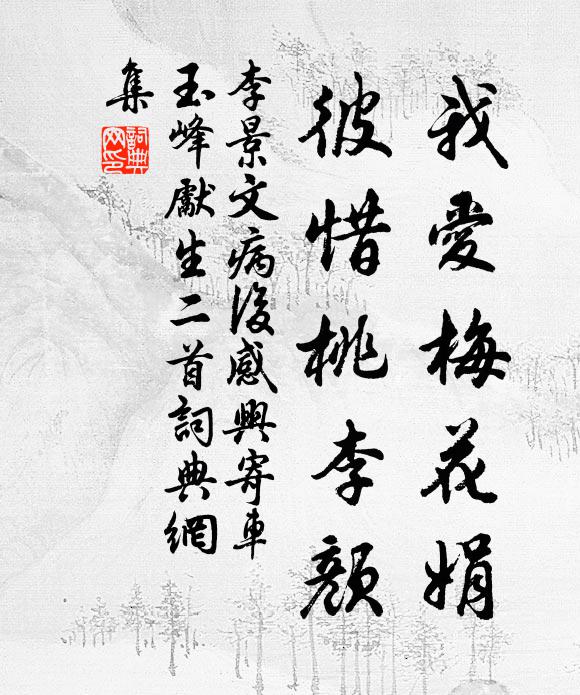 我愛梅花娟
彼惜桃李顏
李景文病後感興寄車
玉峰獻生二首詞典網
集
詞典
网印